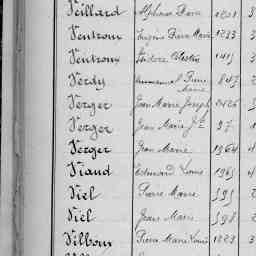 Veillard Alphonse Pierre 1201 3
Ventroux Eugène Pierre Marie 1233 3
Ventroux Isidore Célestin 1415 3
Verdy Emmanuel Pierre Marie 847 2
Verger Jean Marie Joseph 2426 5
Verger Jean Marie 97 1
Verger Jean Marie 1964 4
Viaud Edmond Louis 1965 4
Viel Pierre Marie 595 2
Viel Jean Marie 598 2
Vilboux Pierre Marie Louis 1223 3